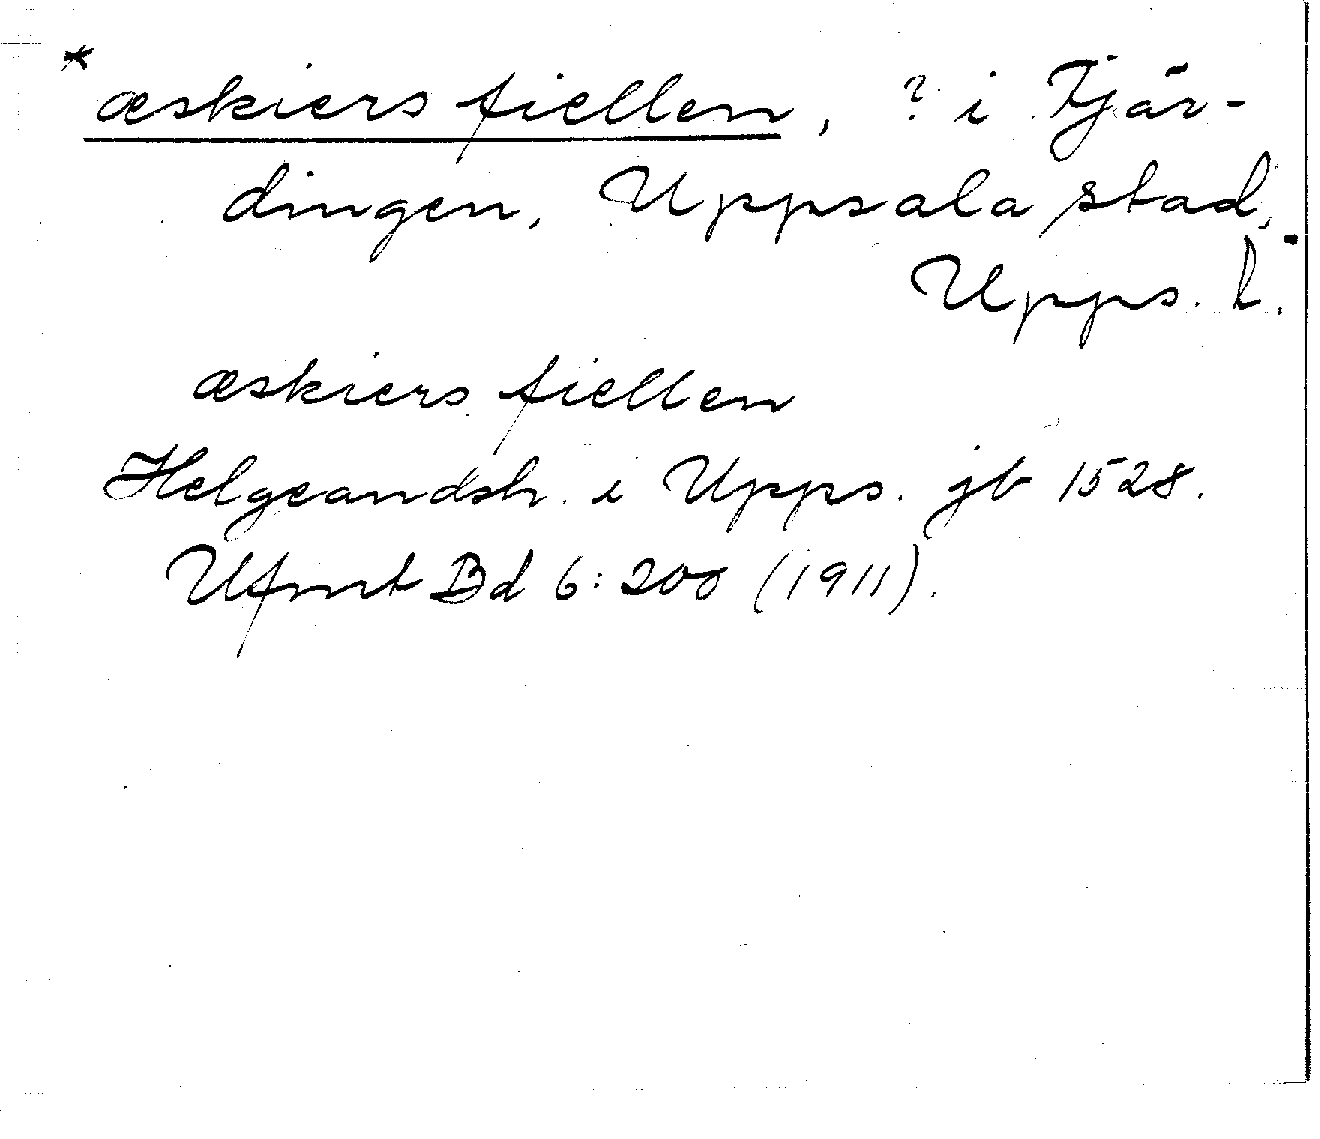 *
æskiers fiellen, ? i Fjär-
dingen, Uppsala stad,
Upps. l.
æskiers fiellen
Helgeandsh. i Upps. jb 1528.
Ufmt Bd 6: 200 (1911).